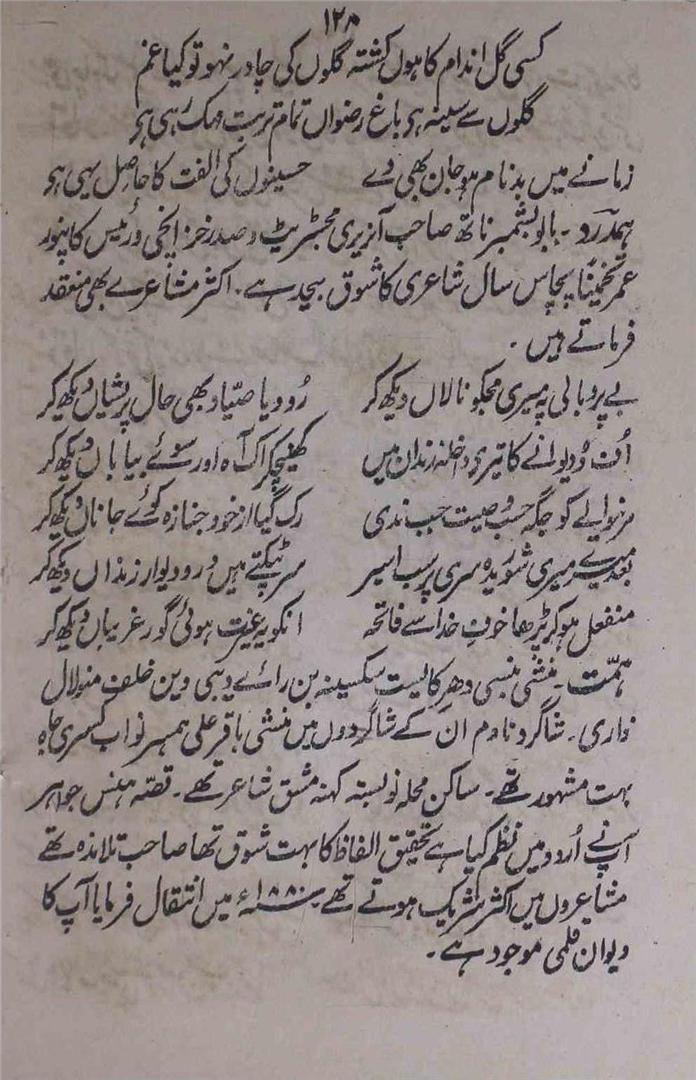 ۱۲۸
کسی گل اندام کا ہوں کشتہ گلوں کی چادر نہو تو کیا غم
گلوں سے سینہ ہو باغ رضواں تمام تربت مہک رہی ہو
زمانے میں بدنام ہو جان بھی دے حسینوں کی الفت کا حاصل یہی ہو
ہمدرد ۔ بابو بشمبر ناتھ صاحب آنریری مجسٹریٹ و صدر خزانچی و رئیس کانپور
عمر تخمیناً پچاس سال شاعری کا شوق بیحد ہے ۔ اکثر مشاعرے بھی منعقد
فرماتے ہیں ۔
بے پر و بالی پہ میری مجکو نالاں دیکھ کر رو دیا صیاد بھی حال پریشاں دیکھ کر
اف وہ دیوانے کا تیرے داخلہ زندان میں کھینچکر اک آہ اور سوئے بیاباں دیکھ کر
مرنوالے کو جگہ حسب وصیت جب ندی رک گیا از خود جنازہ کوئے جاناں دیکھ کر
بعد میرے میری شوریدہ سری پر سب اسیر سر پٹکتے ہیں در و دیوار زنداں دیکھ کر
منفعل ہو کر پڑھا خوف خدا سے فاتحہ انکو یہ عبرت ہوئی گور غریباں دیکھ کر
ہمّت ۔ منشی بنسی دھر کایست سکسینہ بن رائے دیبی دین خلف منولال
زاری ۔ شاگرد نادم ان کے شاگردوں میں منشی باقر علی ہمسر نواب کسری جاہ
بہت مشہور تھے ۔ ساکن محلہ نوبستہ کہنہ مشق شاعر تھے ۔ قصہ ہنس جواہر
آپ نے اُردو میں نظم کیا ہے تحقیق الفاظ کا بہت شوق تھا صاحب تلامذہ تھے
مشاعروں میں اکثر شریک ہوتے تھے ۱۸۸۰ء میں انتقال فرمایا آپ کا
دیوان قلمی موجود ہے ۔